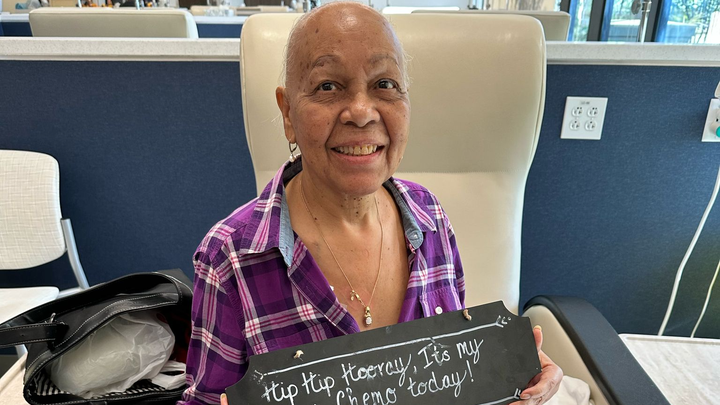 Hip Hip Hooray, It's my
Chemo today!